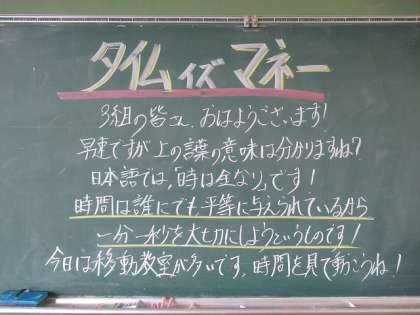 タイム イズ マネー
3組の皆さん、おはようございます!
早速ですが上の言葉の意味は分かりますね?
日本語では、「時は金なり」です!
時間は誰にでも平等に与えられているから
一分一秒を大切にしようというものです!
今日は移動教室が多いです、時間を見て動こうね!